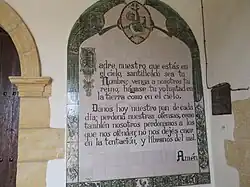 Padre nuestro que estás en
el cielo, santificado sea tu
Nombre; venga a nosotros tu
reino; hágase tu voluntad en
la tierra como en el cielo.
Danos hoy nuestro pan de cada
día; perdona nuestras ofensas, como
también nosotros perdonamos a los
que nos ofenden; no nos dejes caer
en la tentación, y líbranos del mal.
Amén